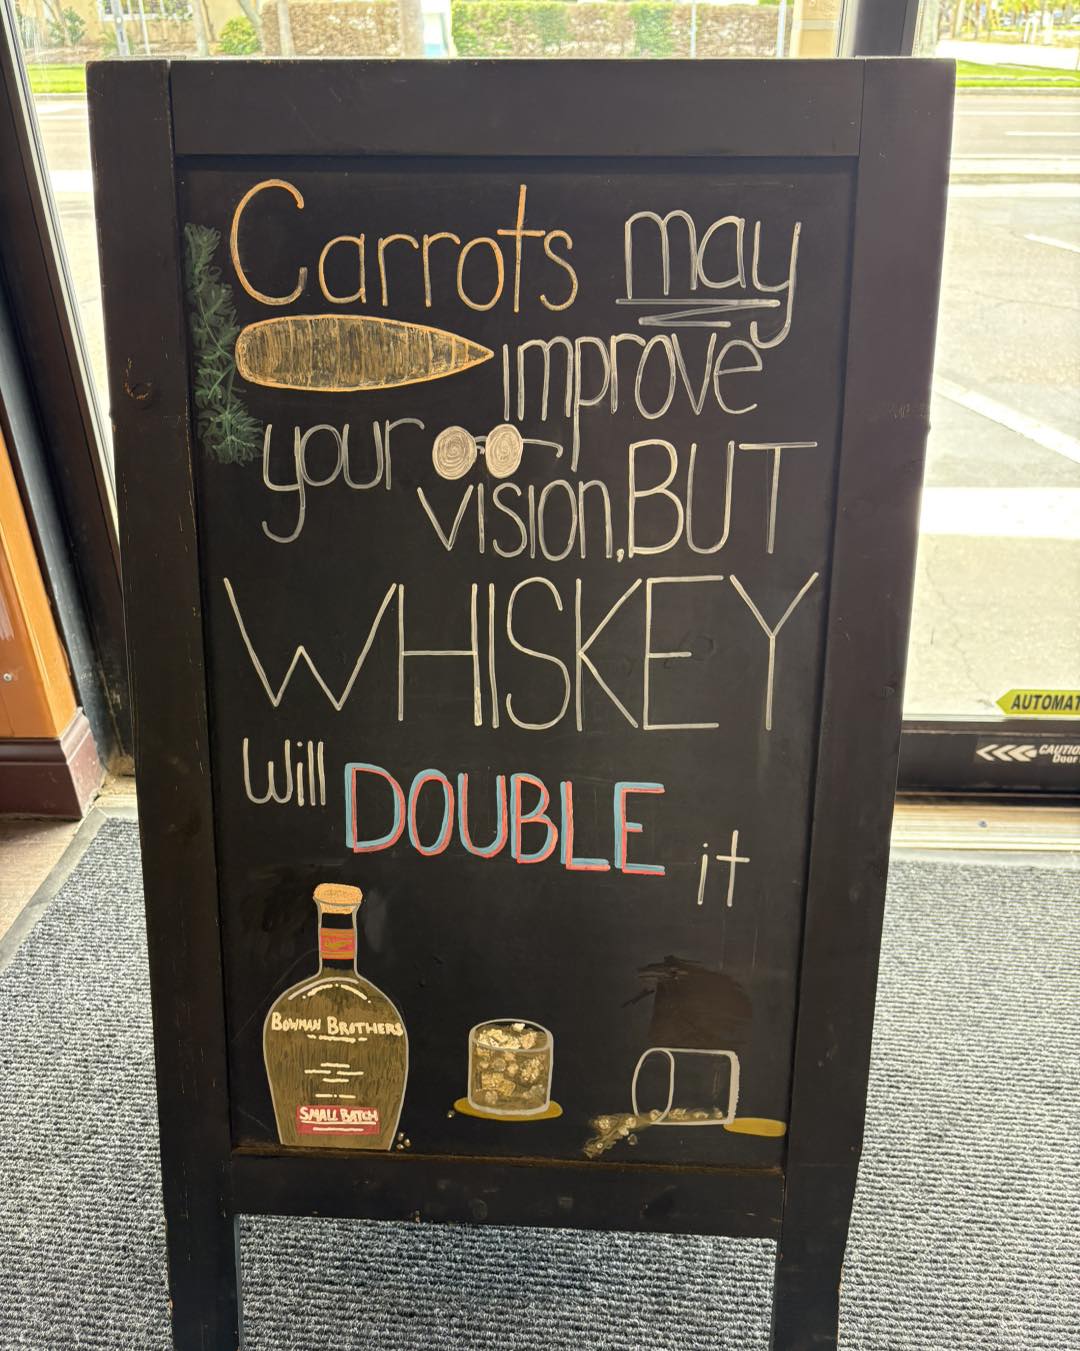 Carrots may
improve
your vision, BUT
WHISKEY
will DOUBLE it
BOWMAN BROTHERS
SMALL BATCH
AUTOMAT
CAUTIO
Door